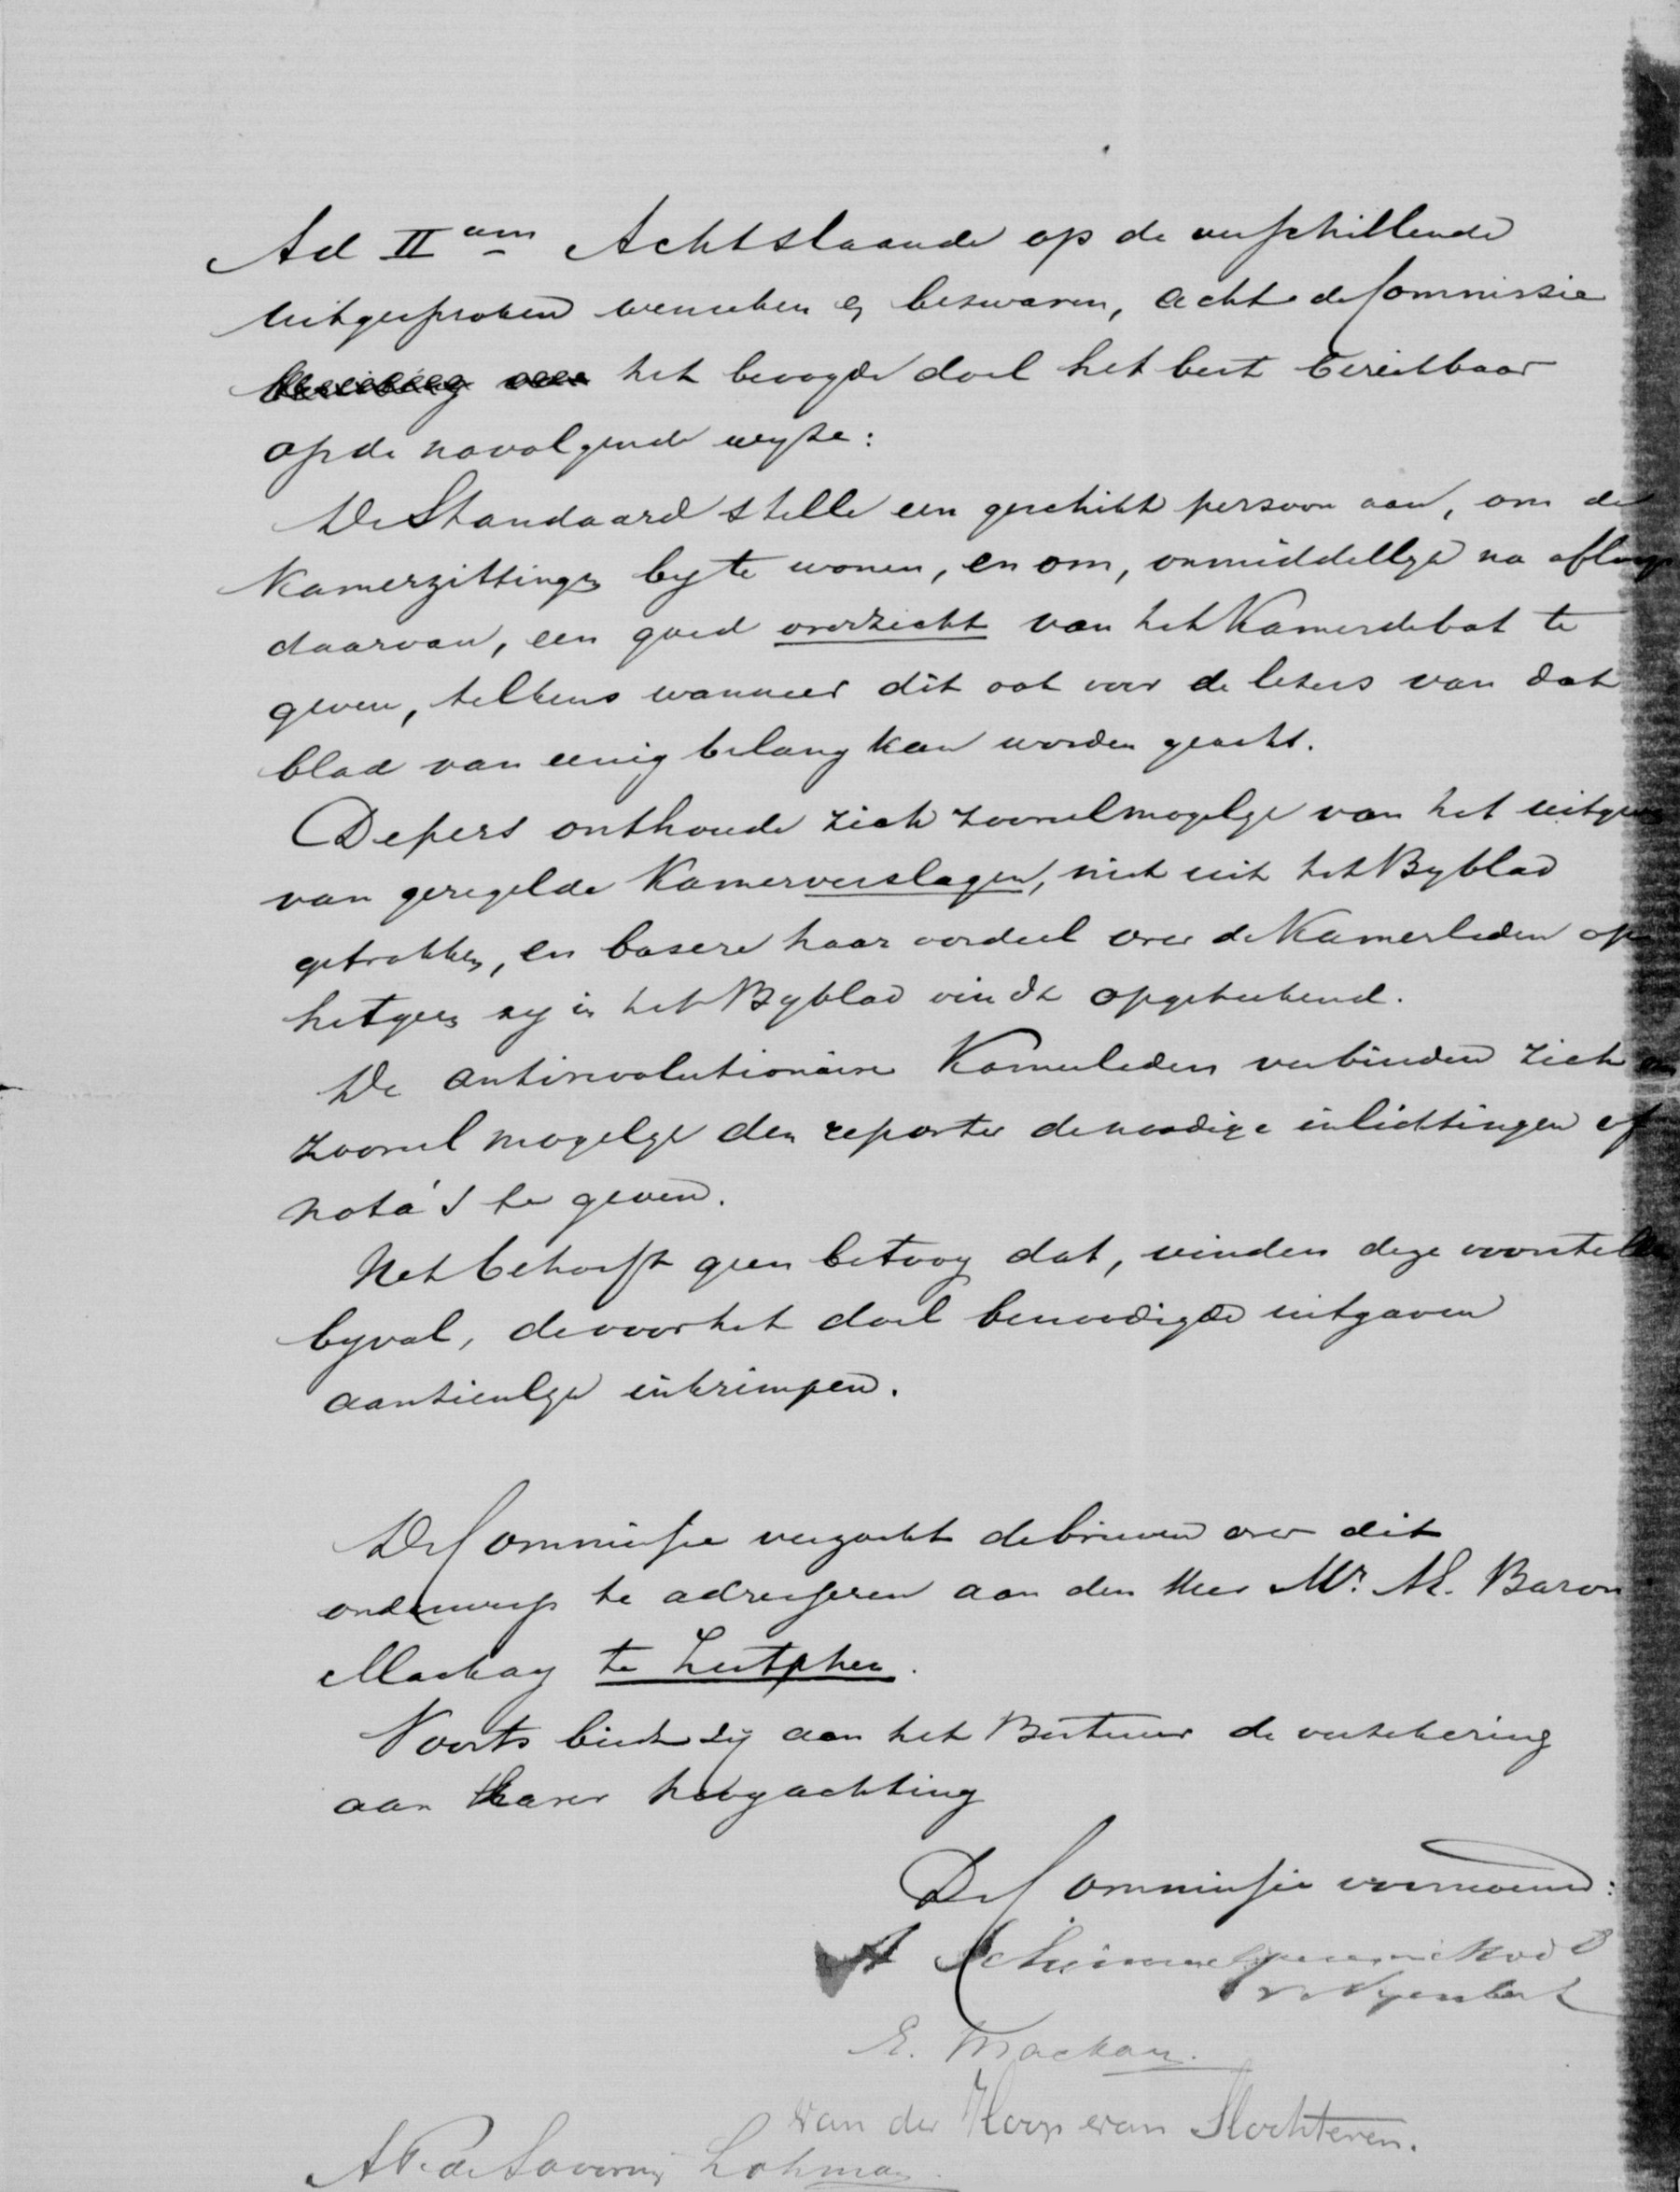 Ad II am Achtslaande op de verschillende
uitgesproken wenschen en bezwaren, acht de Commissie
het beoogde doel het best bereikbaar
op de navolgende wyze:
De Standaard stelle een geschikt persoon aan, om de
Kamerzittingen by te wonen, en om, onmiddellyk na afloop
daarvan, een goed overzicht van het Kamerdebat te
geven, telkens wanneer dit ook voor de lezers van dat
blad van eenig belang kan worden geacht.
De pers onthoude zich zooveel mogelyk van het uitgeven
van geregelde Kamerverslagen, niet uit het Byblad
getrokken, en basere haar oordeel over de Kamerleden op
hetgeen zy in het Byblad vindt opgeteekend.
De antirevolutionaire Kamerleden verbinden zich om
zooveel mogelyk den reporter de noodige inlichtingen of
nota's te geven.
Het behoeft geen betoog dat, vinden deze voorstellen
byval, de voor het doel benoodigde uitgaven
aanzienlyk inkrimpen.
De Commissie verzoekt de brieven over dit
onderwerp te adresseren aan den Heer Mr. Æ. Baron
Mackay te Zutphen.
Voorts biedt zij aan het Bestuur de verzekering
aan harer hoogachting
De Commissie voornoemd:
A Schimmelpenninck vd O
v. Nyenbeek
E. Mackay.
van der Hoop van Slochteren.
AF. de Savornin Lohman.